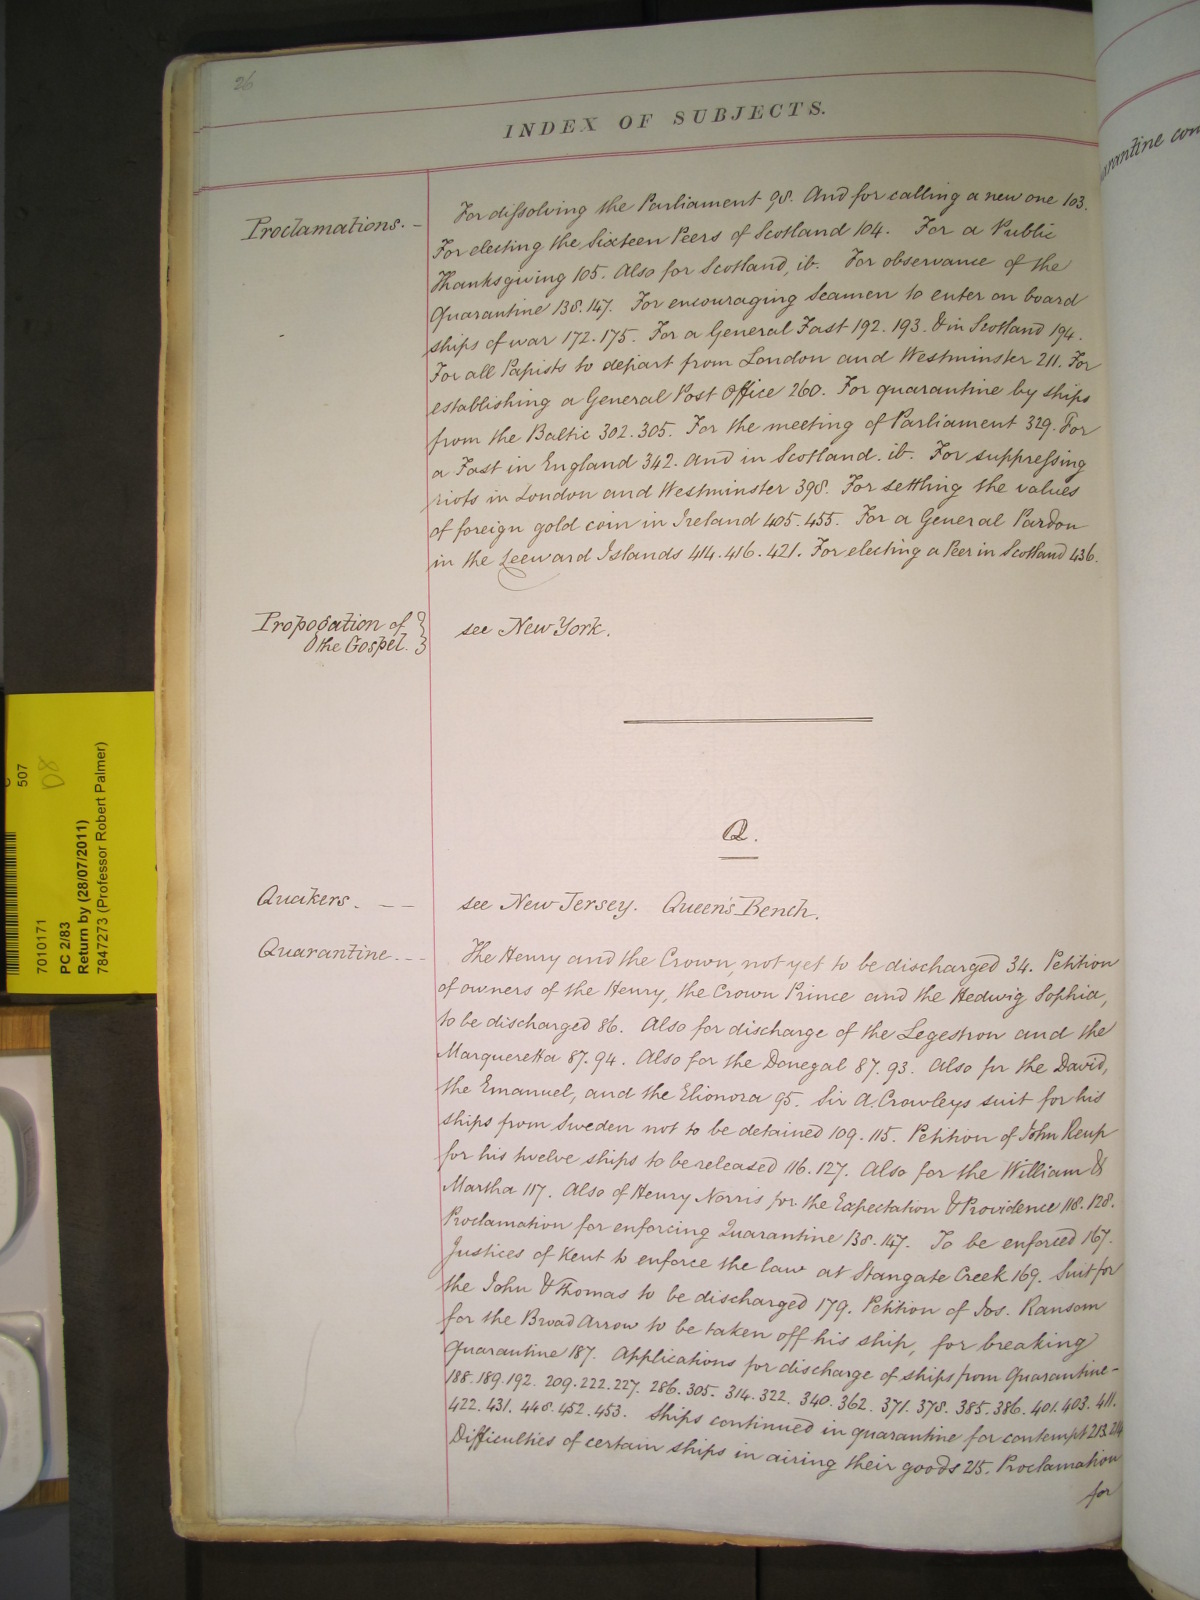 26
INDEX OF SUBJECTS.
arantine con
Proclamations. -
For dissolving the Parliament 98. And for calling a new one 103.
For electing the Sixteen Peers of Scotland 104. For a Public
Thanksgiving 105. Also for Scotland, ib. For observance of the
Quarantine 138.147. For encouraging Seamen to enter on board
ships of war 172.175. For a General Fast 192. 193. & in Scotland 194.
For all Papists to depart from London and Westminster 211. For
establishing a General Post Office 260. For quarantine by ships
from the Baltic 302. 305. For the meeting of Parliament 329. For
a Fast in England 342. And in Scotland. ib. For suppressing
riots in London and Westminster 398. For settling the values
of foreign gold coin in Ireland 405. 455. For a General Pardon
in the Leeward Islands 414.416.421. For electing a Peer in Scotland 436.
Propogation of
the Gospel.
see New York.
Q.
Quakers. - -
see New Jersey. Queen's Bench.
Quarantine. - -
The Henry and the Crown, not yet to be discharged 34. Petition
of owners of the Henry, the Crown Prince and the Hedwig Sophia,
to be discharged 86. Also for discharge of the Legestron and the
Marqueretta 87. 94. Also for the Donegal 87. 93. Also for the David,
the Emanuel, and the Elionora 95. Sir A. Crowleys suit for his
ships from Sweden not to be detained 109. 115. Petition of John Reup
for his twelve ships to be released 116. 127. Also for the William &
Martha 117. Also of Henry Norris for the Expectation & Providence 118. 128.
Proclamation for enforcing Quarantine 138. 147. To be enforced 167.
Justices of Kent to enforce the law at Stangate Creek 169. Suit for
the John & Thomas to be discharged 179. Petition of Jos. Ransom
for the Broad Arrow to be taken off his ship, for breaking
Quarantine 187. Applications for discharge of ships from Quarantine -
188. 189. 192. 209. 222. 227. 286. 305. 314. 322. 340. 362. 371. 378. 385. 386. 401. 403. 411.
422. 431. 448. 452. 453. Ships continued in quarantine for contempt 213. 214
Difficulties of certain ships in airing their goods 215. Proclamation
for
507
D8
7010171
PC 2/83
Return by (28/07/2011)
7847273 (Professor Robert Palmer)